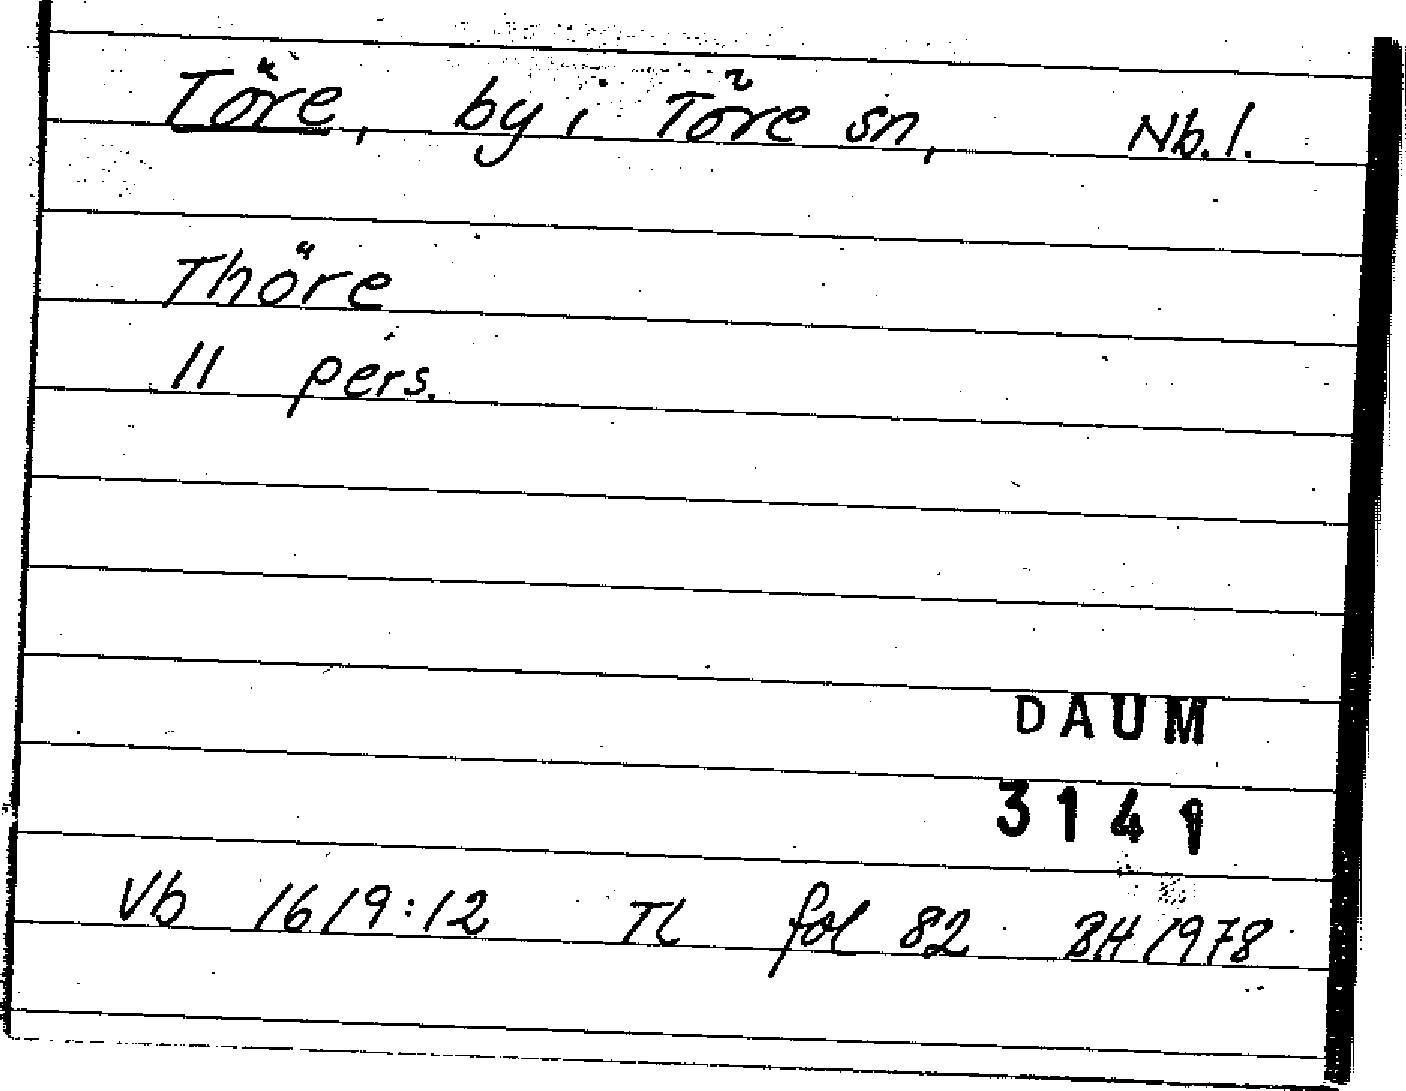 Töre, by i Töre sn, Nb. l.
Thöre
11 pers.
DAUM
3141
Vb 1619:12 TL fol 82 BH 1978